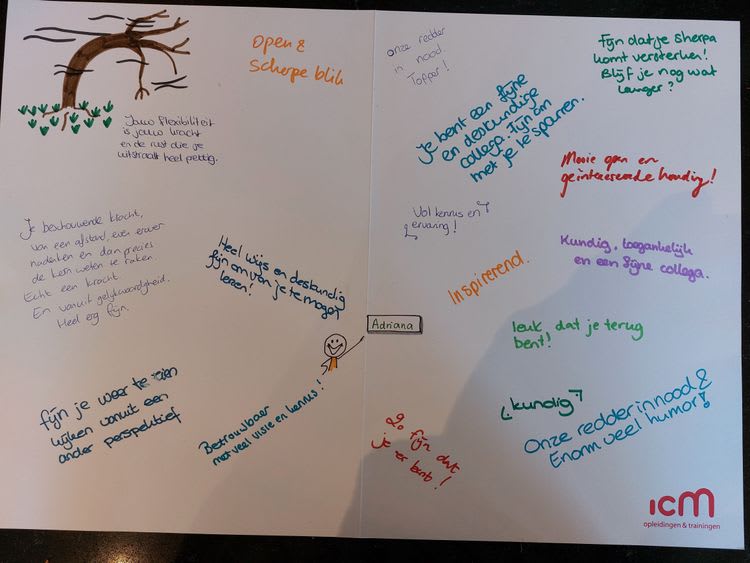 Open &
Scherpe blik
Jouw flexibiliteit
is jouw kracht
en de rust die je
uitstraalt heel prettig.
Je beschouwende kracht,
van een afstand, even erover
nadenken en dan precies
de kern weten te raken.
Echt een kracht
En vanuit gelijkwaardigheid.
Heel erg fijn
Heel wijs en deskundig
fijn om van je te mogen
leren!
fijn je weer te zien
kijken vanuit een
ander perspektief
Betrouwbaar
met veel visie en kennis!
Adriana
Onze redder
in nood.
Topper!
Fijn dat je Sherpa
komt versterken!
Blijf je nog wat
langer?
Je bent een fijne
en deskundige
collega. Fijn om
met je te sparren.
Mooie open en
geïnteresseerde houding!
Vol kennis en
ervaring!
Kundig, toegankelijk
en een fijne collega.
Inspirerend.
leuk dat je terug
bent!
kundig
Onze redder in nood &
Enorm veel humor!
Zo fijn dat
je er bent!
icm
opleidingen & trainingen